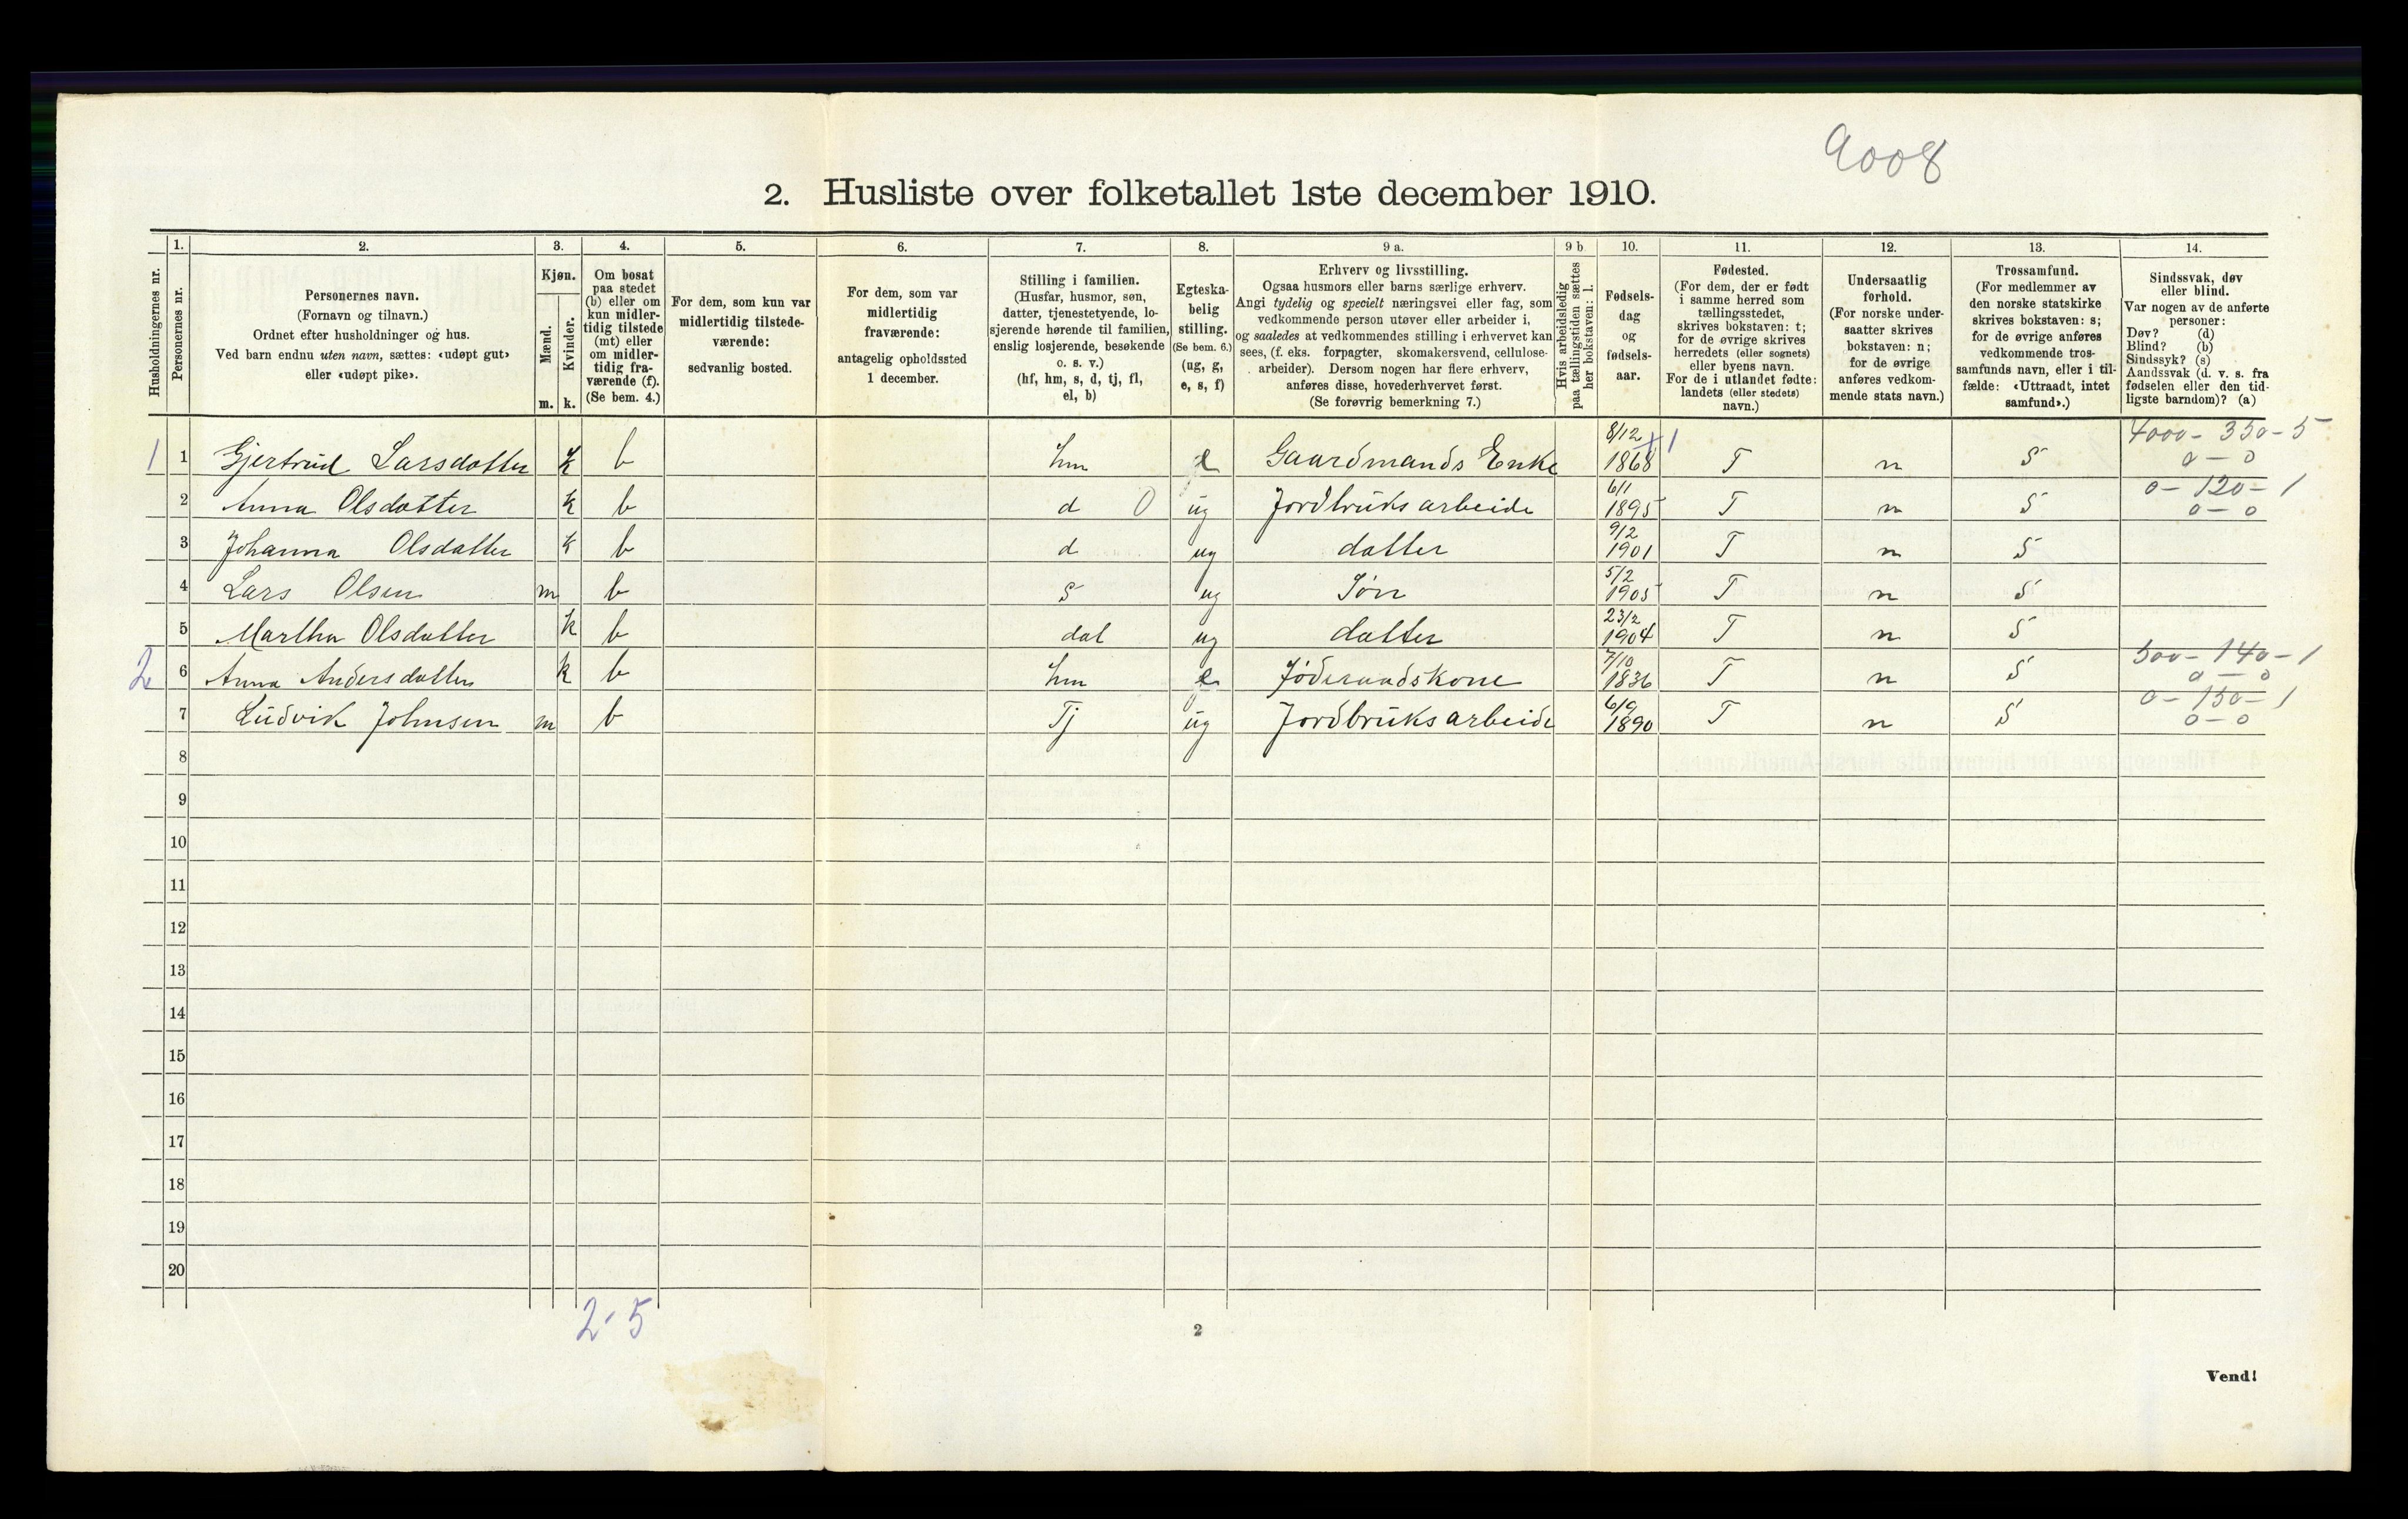 9008
2. Husliste over folketallet 1ste december 1910.
Husholdningernes nr.
1.
Personernes nr.
2.
Personernes navn.
(Fornavn og tilnavn.)
Ordnet efter husholdninger og hus.
Ved barn endnu uten navn, sættes: «udøpt gut»
eller «udøpt pike».
3.
Kjøn.
Mænd.
Kvinder.
m. k.
4.
Om bosat
paa stedet
(b) eller om
kun midler-
tidig tilstede
(mt) eller
om midler-
tidig fra-
værende (f).
(Se bem. 4.)
5.
For dem, som kun var
midlertidig tilstede-
værende:
sedvanlig bosted.
6.
For dem, som var
midlertidig
fraværende:
antagelig opholdssted
1 december.
7.
Stilling i familien.
(Husfar, husmor, søn,
datter, tjenestetyende, lo-
sjerende hørende til familien,
enslig losjerende, besøkende
o. s. v.)
(hf, hm, s, d, tj, fl,
el, b)
8.
Egteska-
belig
stilling.
(Se bem. 6.)
(ug, g,
e, s, f)
9 a.
Erhverv og livsstilling.
Ogsaa husmors eller barns særlige erhverv.
Angi tydelig og specielt næringsvei eller fag, som
vedkommende person utøver eller arbeider i,
og saaledes at vedkommendes stilling i erhvervet kan
sees, (f. eks. forpagter, skomakersvend, cellulose-
arbeider). Dersom nogen har flere erhverv,
anføres disse, hovederhvervet først.
(Se forøvrig bemerkning 7.)
9 b
Hvis arbeidsledig
paa tællingstiden sættes
her bokstaven: l.
10.
Fødsels-
dag
og
fødsels-
aar.
11.
Fødested.
(For dem, der er født
i samme herred som
tællingsstedet,
skrives bokstaven: t;
for de øvrige skrives
herredets (eller sognets)
eller byens navn.
For de i utlandet fødte:
landets (eller stedets)
navn.)
12.
Undersaatlig
forhold.
(For norske under-
saatter skrives
bokstaven: n;
for de øvrige
anføres vedkom-
mende stats navn.)
13.
Trossamfund.
(For medlemmer av
den norske statskirke
skrives bokstaven: s;
for de øvrige anføres
vedkommende tros-
samfunds navn, eller i til-
fælde: «Uttraadt, intet
samfund».)
14.
Sindssvak, døv
eller blind.
Var nogen av de anførte
personer:
Døv? (d)
Blind? (b)
Sindssyk? (s)
Aandssvak (d. v. s. fra
fødselen eller den tid-
ligste barndom)? (a)
1 1 Gjertrud Larsdatter k b hm e Gaardmands Enke 8/12 1868 T n S 4000 - 350 - 5 0 - 0
2 Anna Olsdatter k b d 0 ug Jordbruksarbeide 6/1 1895 T n S 0 - 120 - 1 0 - 0
3 Johanna Olsdatter k b d ug datter 9/2 1901 T n S
4 Lars Olsen m b S ug Søn 5/2 1905 T n S
5 Martha Olsdatter k b dat ug datter 23/2 1904 T n S
2 6 Anna Andersdatter k b hm e 7/10 1836 T n S 500 - 140 - 1 0 - 0
7 Ludvik Johnsen m b Tj ug Jordbruksarbeide 6/9 1890 T n S 0 - 150 - 1 0 - 0
8
9
10
11
12
13
14
15
16
17
18
19
20
2-5
2
Vend!